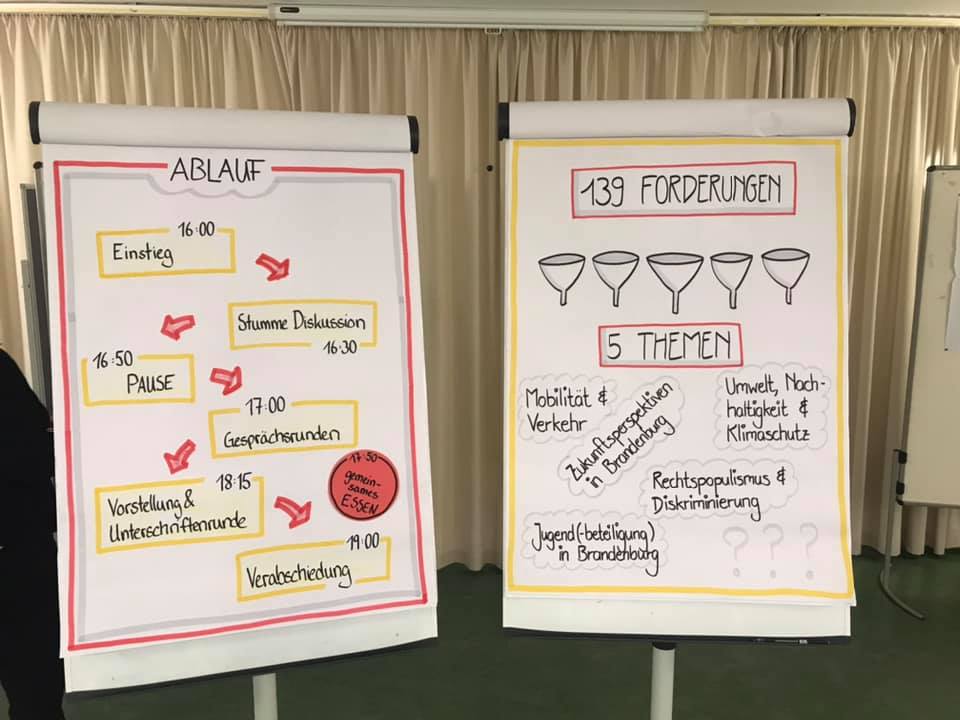 ABLAUF
16:00
Einstieg
Stumme Diskussion
16:30
16:50
PAUSE
17:00
Gesprächsrunden
17:50
gemein-
sames
ESSEN
18:15
Vorstellung &
Unterschriftenrunde
19:00
Verabschiedung
139 FORDERUNGEN
5 THEMEN
Mobilität &
Verkehr
Zukunftsperspektiven
in Brandenburg
Umwelt, Nach-
haltigkeit &
Klimaschutz
Rechtspopulismus &
Diskriminierung
Jugend(-beteiligung)
in Brandenburg
? ? ?